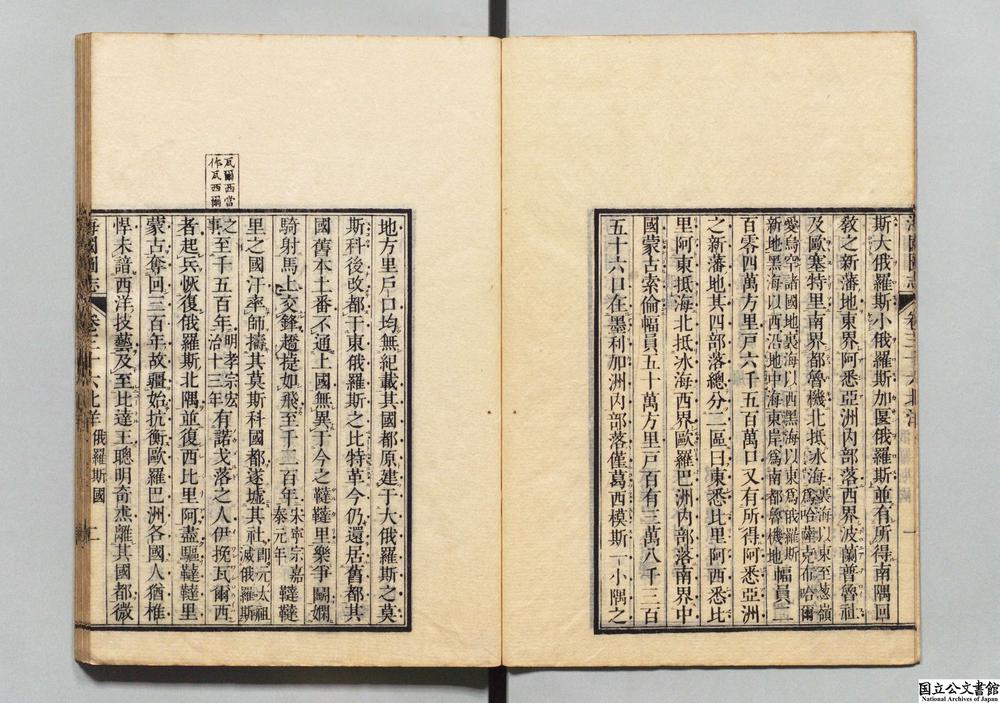 斯大俄羅斯小俄羅斯加匽俄羅斯並有所得南隅回
敎之新藩地東界阿悉亞洲內部落西界波蘭普魯社
及歐塞特里南界都魯機北抵冰海裏海以東至葱嶺爲哈薩克布哈爾
愛烏罕諸國地裏海以西黑海以東爲俄羅斯新地黑海以西沿地中海東岸爲南都魯機地幅員二
百零四萬方里戶六千五百萬口又有所得阿悉亞洲
之新藩地其四部落總分二區曰東悉比里阿西悉比
里阿東抵海北抵冰海西界歐羅巴洲內部落南界中
國蒙古索倫幅員五十萬方里戶百有三萬八千三百
五十六口在墨利加洲內部落僅葛西模斯一小隅之
地方里戶口均無紀載其國都原建于大俄羅斯之莫
斯科後改都于東俄羅斯之比特革今仍還居舊都其
國舊本土番不通上國無異于今之韃韃里樂爭鬭嫻
騎射馬上交鋒趫捷如飛至千二百年宋寧宗嘉泰元年韃韃
里之國汗率師擣其莫斯科國都遂墟其社卽元太祖滅俄羅斯
之事至千五百年明孝宗宏治十三年有諾戈落之人伊挽瓦爾西
者起兵恢復俄羅斯北隅並復西比里阿盡驅韃韃里
蒙古奪回三百年故疆始抗衡歐羅巴洲各國人猶椎
悍未諳西洋技藝及至比達王聰明奇杰離其國都微
海國圖志
卷三十六北洋
俄羅斯國
二
瓦爾西當
作瓦西爾
国立公文書館
National Archives of Japan